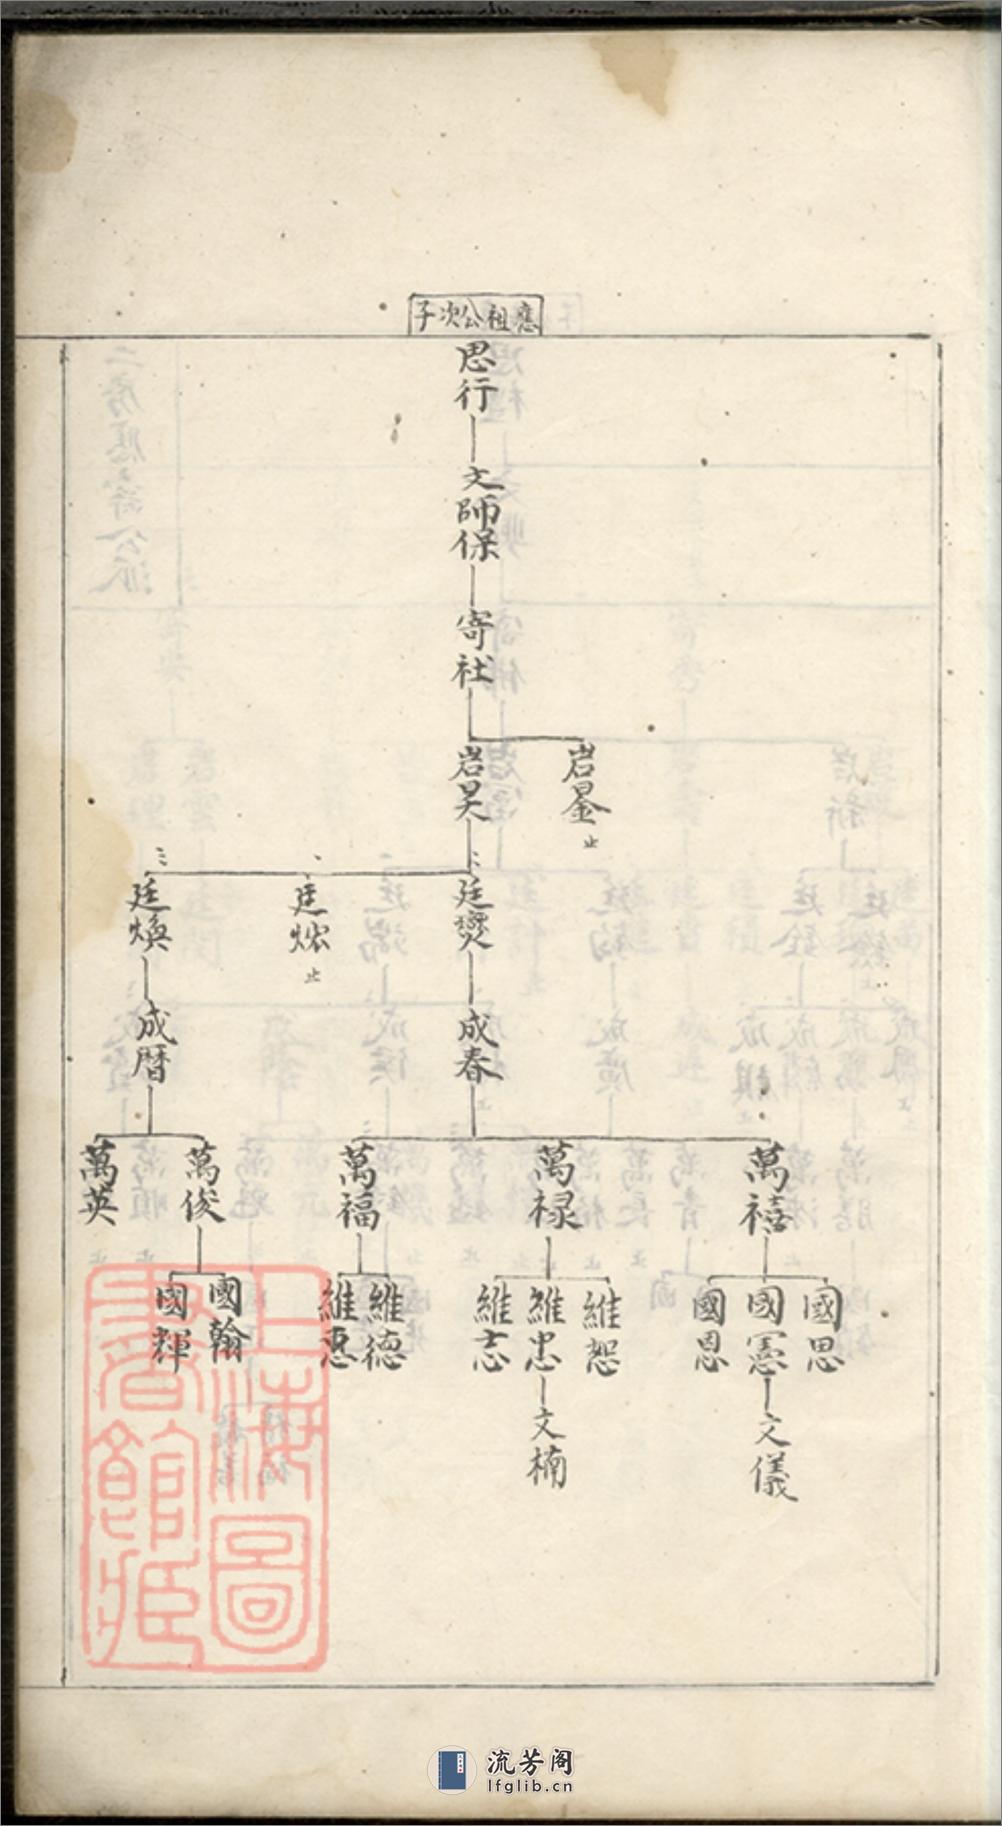 應祖公次子
思行
文師保
寄社
岩鋻止
岩昊
廷爕
廷㷃止
廷煥
成春
成曆
萬禧
萬祿
萬福
萬俊
萬英
國思
國憲
國恩
維恕
維忠
維志
維德
維惠
國翰
國輝
文儀
文楠
上海圖書館藏
流芳阁
lfglib.cn